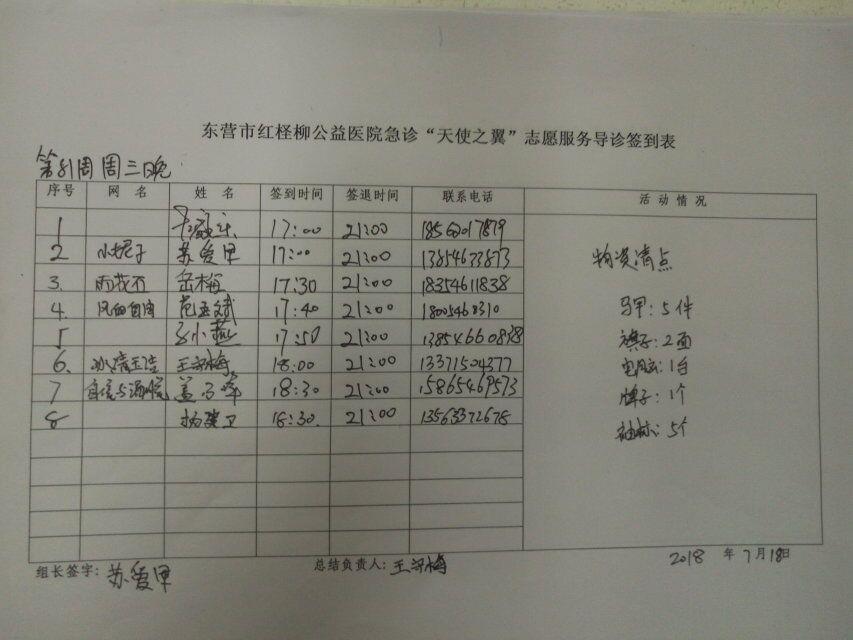 东营市红柽柳公益医院急诊“天使之翼”志愿服务导诊签到表
第81周 周三晚
序号 网 名 姓 名 签到时间 签退时间 联系电话 活动情况
1 17:00 21:00 18562017879
2 小妮子 苏爱军 17:00 21:00 13854673873
3. 雨花石 岳梅 17:30 21:00 18354611838
4. 风的自由 范孟斌 17:40 21:00 18005468310
5 孙小燕 17:50 21:00 13854660838
6. 冰清玉洁 王守梅 18:00 21:00 13371504377
7 自信与洒脱 18:30 21:00 15865469573
8 杨建卫 18:30. 21:00 13563372678
物资清点
马甲: 5件
旗子: 2面
1台
牌子: 1个
袖标: 5个
组长签字: 苏爱军 总结负责人: 王守梅 2018 年 7月18日